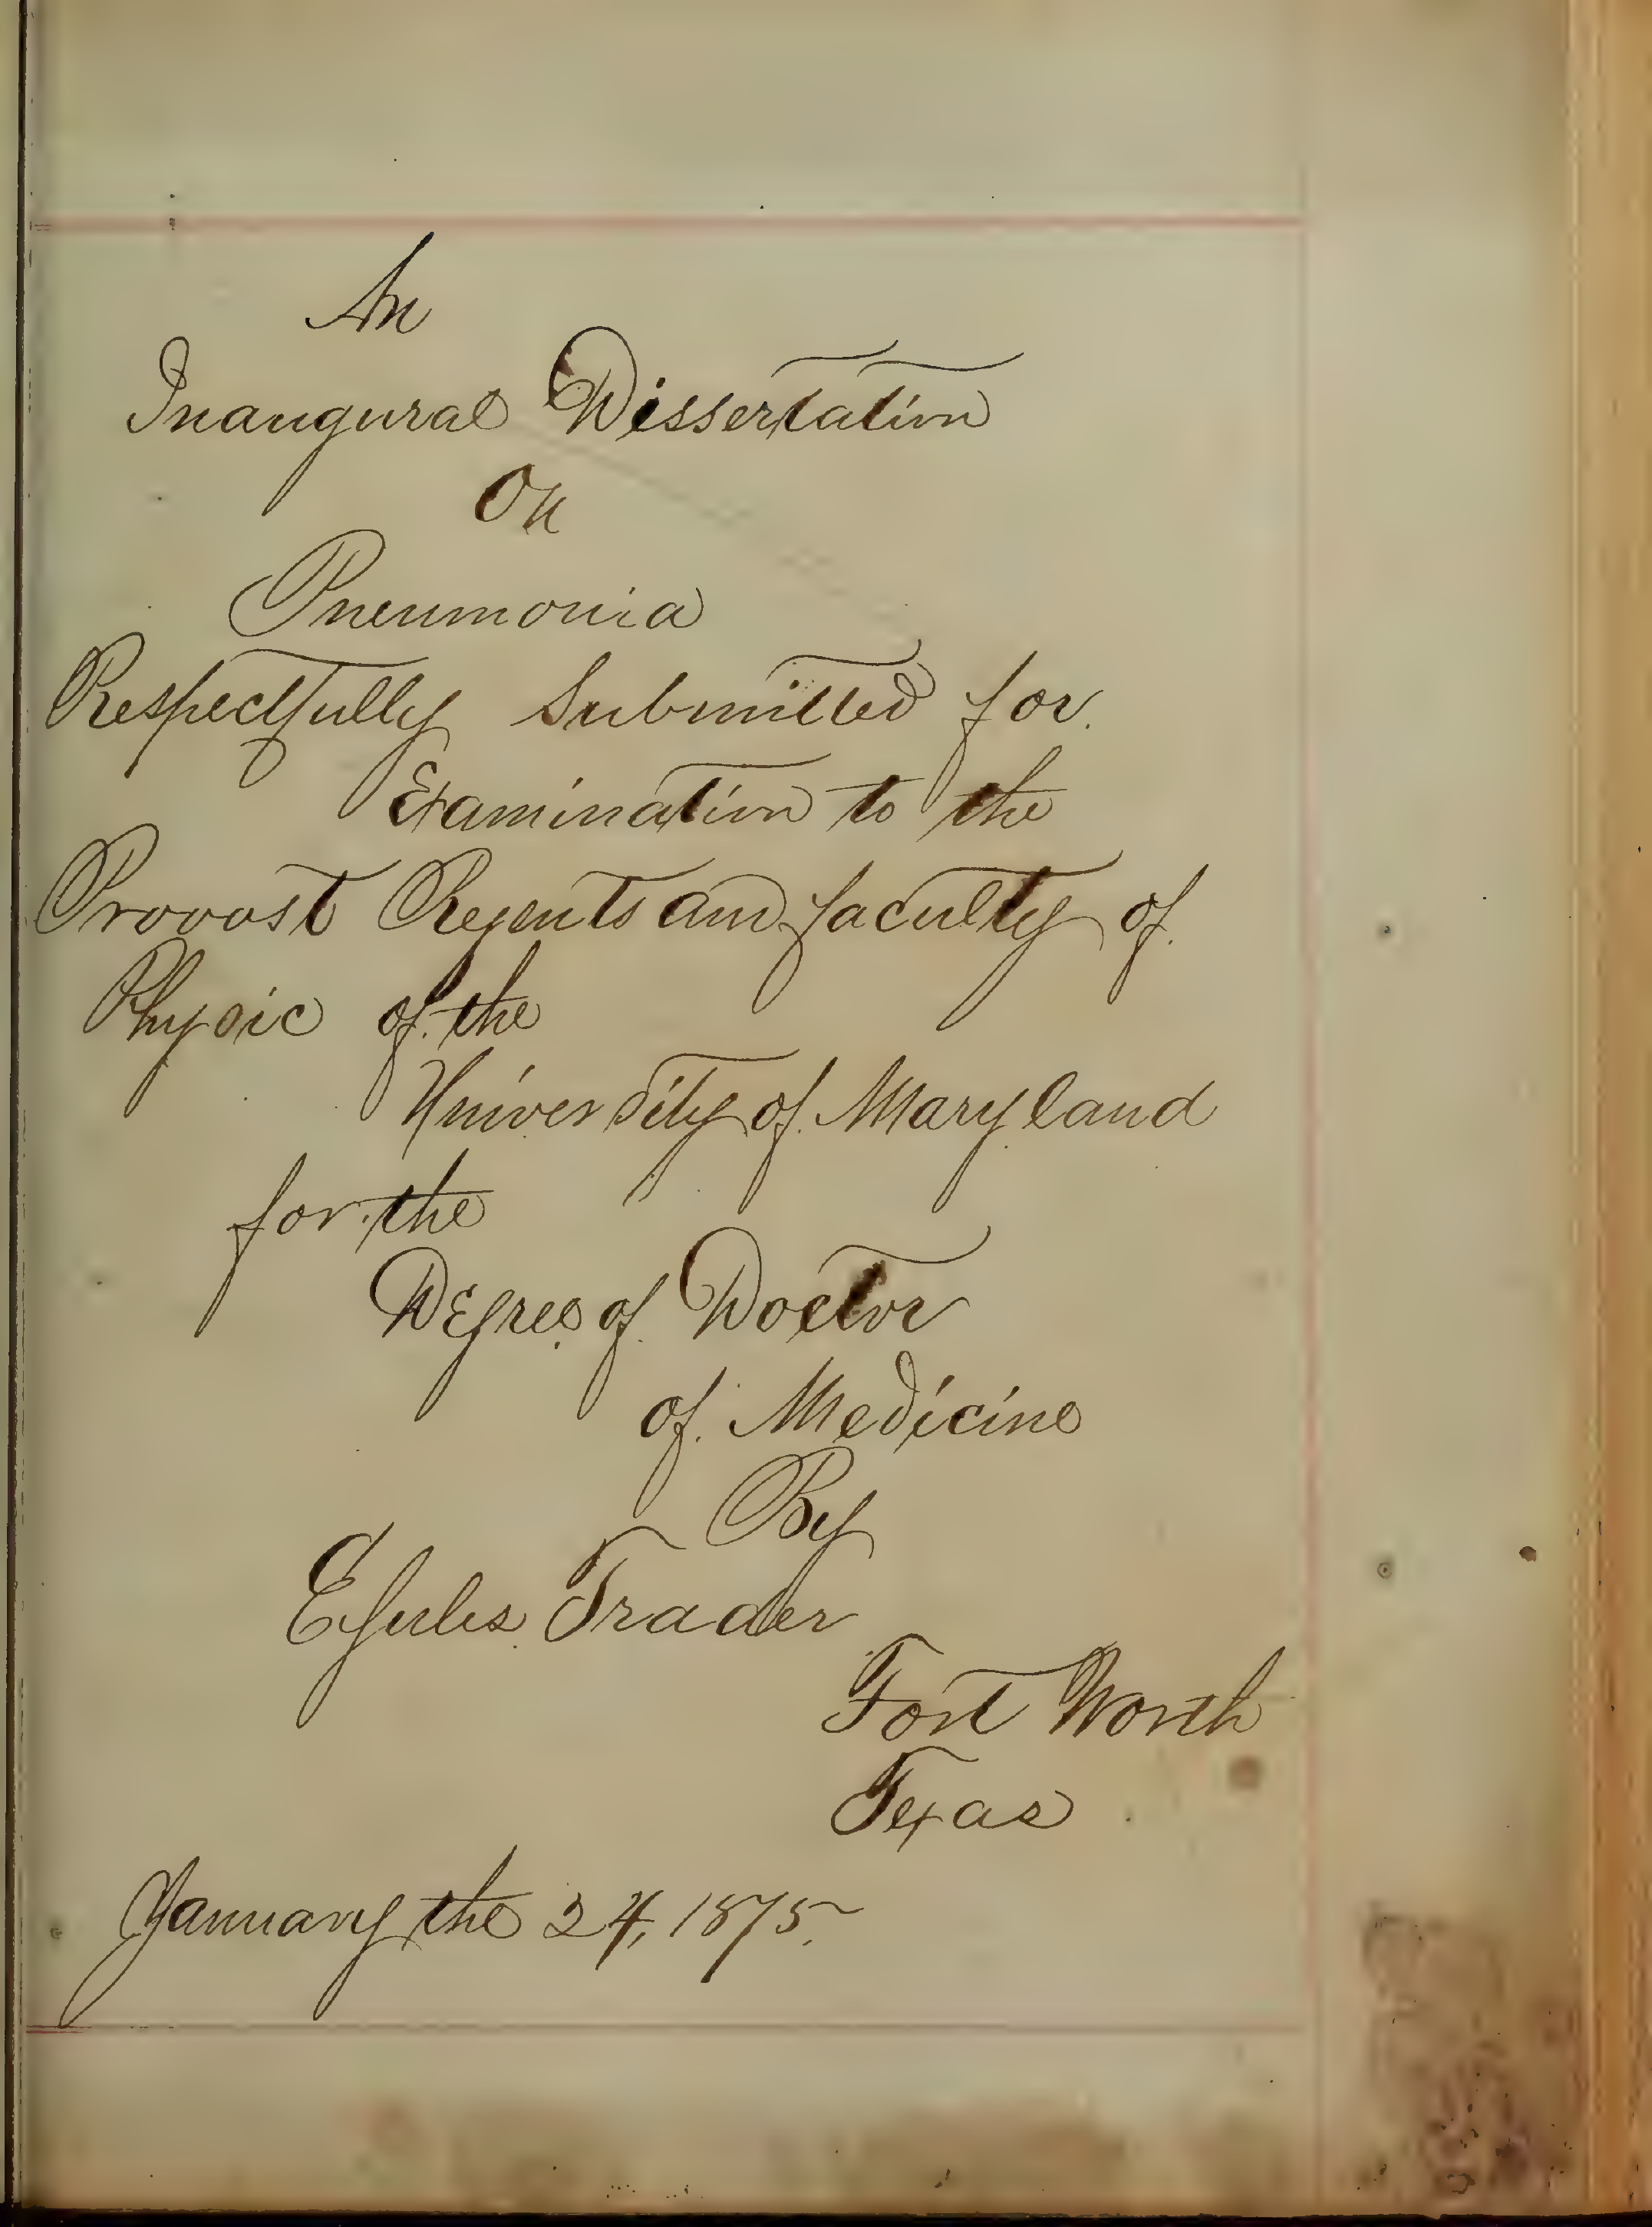 An
Inaugural Dissertation
On
Pneumonia
Respectfully Submitted for
Examination to the
Provost Regents and faculty of
Physic of the
University of Maryland
for the
Degree of Doctor
of Medicine
By
E Jules Trader
Fort Worth
Texas
January the 24, 1875.